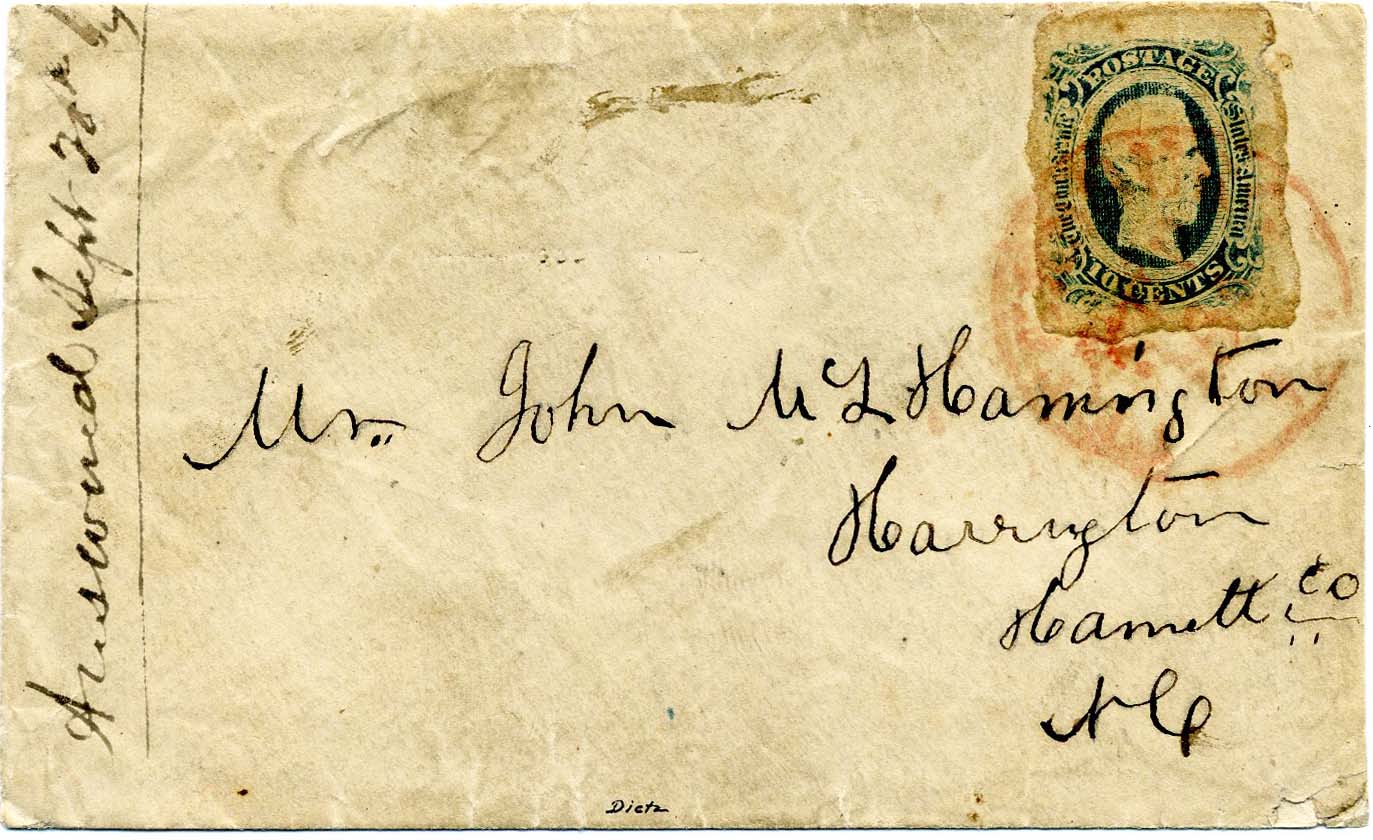 Answered Sept 20th
POSTAGE
The Confederate
States of America
10 CENTS
Mr. John McL Harrington
Harrington
Harnett Co
N C
Dietz